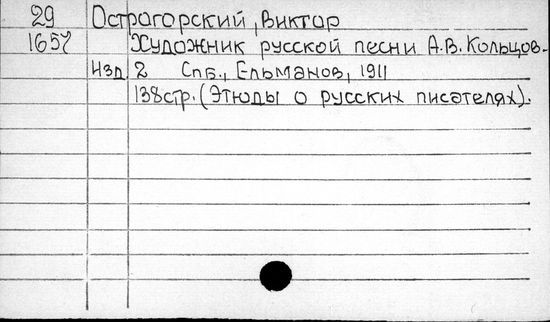 29 Острогорский, Виктор
1657 Художник русской песни А.В. Кольцов.
Изд. 2 Спб., Ельманов, 1911
138стр. (Этюды о русских писателях).